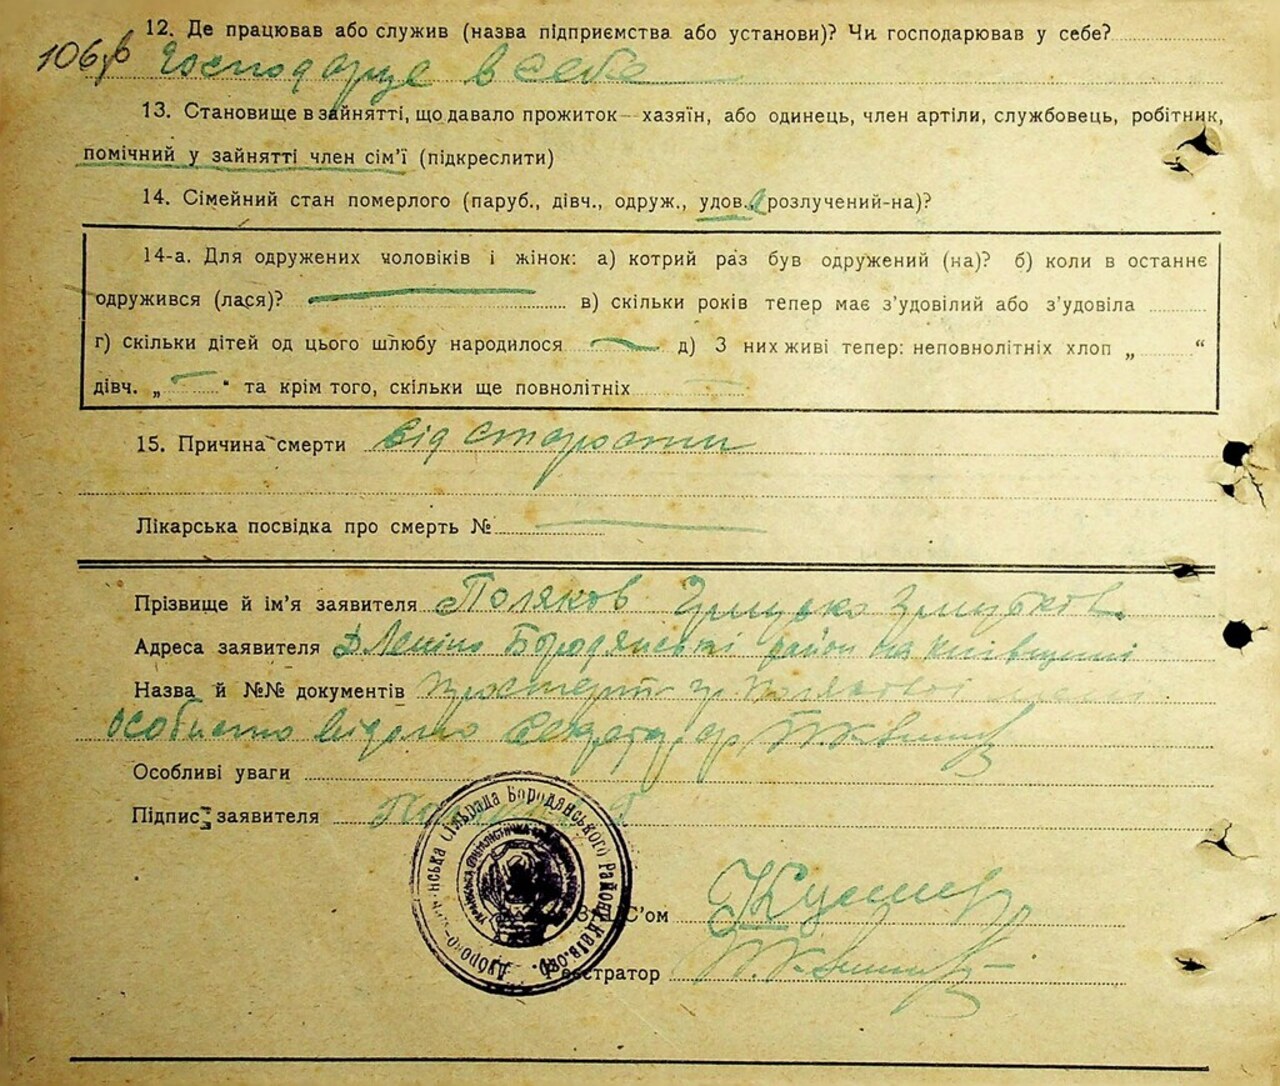 12. Де працював або служив (назва підприємства або установи)? Чи господарював у себе?
106 Господарує в себе
13. Становище в зайнятті, що давало прожиток — хазяїн, або одинець, член артіли, службовець, робітник,
помічний у зайнятті член сім'ї (підкреслити)
14. Сімейний стан померлого (паруб., дівч., одруж., удов., розлучений-на)?
14-а. Для одружених чоловіків і жінок: а) котрий раз був одружений (на)? б) коли в останнє
одружився (лася)? в) скільки років тепер має з'удовілий або з'удовіла
г) скільки дітей од цього шлюбу народилося д) З них живі тепер: неповнолітніх хлоп „ “
дівч. „ “ та крім того, скільки ще повнолітніх
15. Причина смерти від старости
Лікарська посвідка про смерть №
Прізвище й ім'я заявителя Поляков Грицько
Адреса заявителя Бородянські район на Київщині
Назва й №№ документів
особисто відомо
Особливі уваги
Підпис заявителя
сільрада Бородянського району Київ. обл.
ЗАГС'ом
Реєстратор